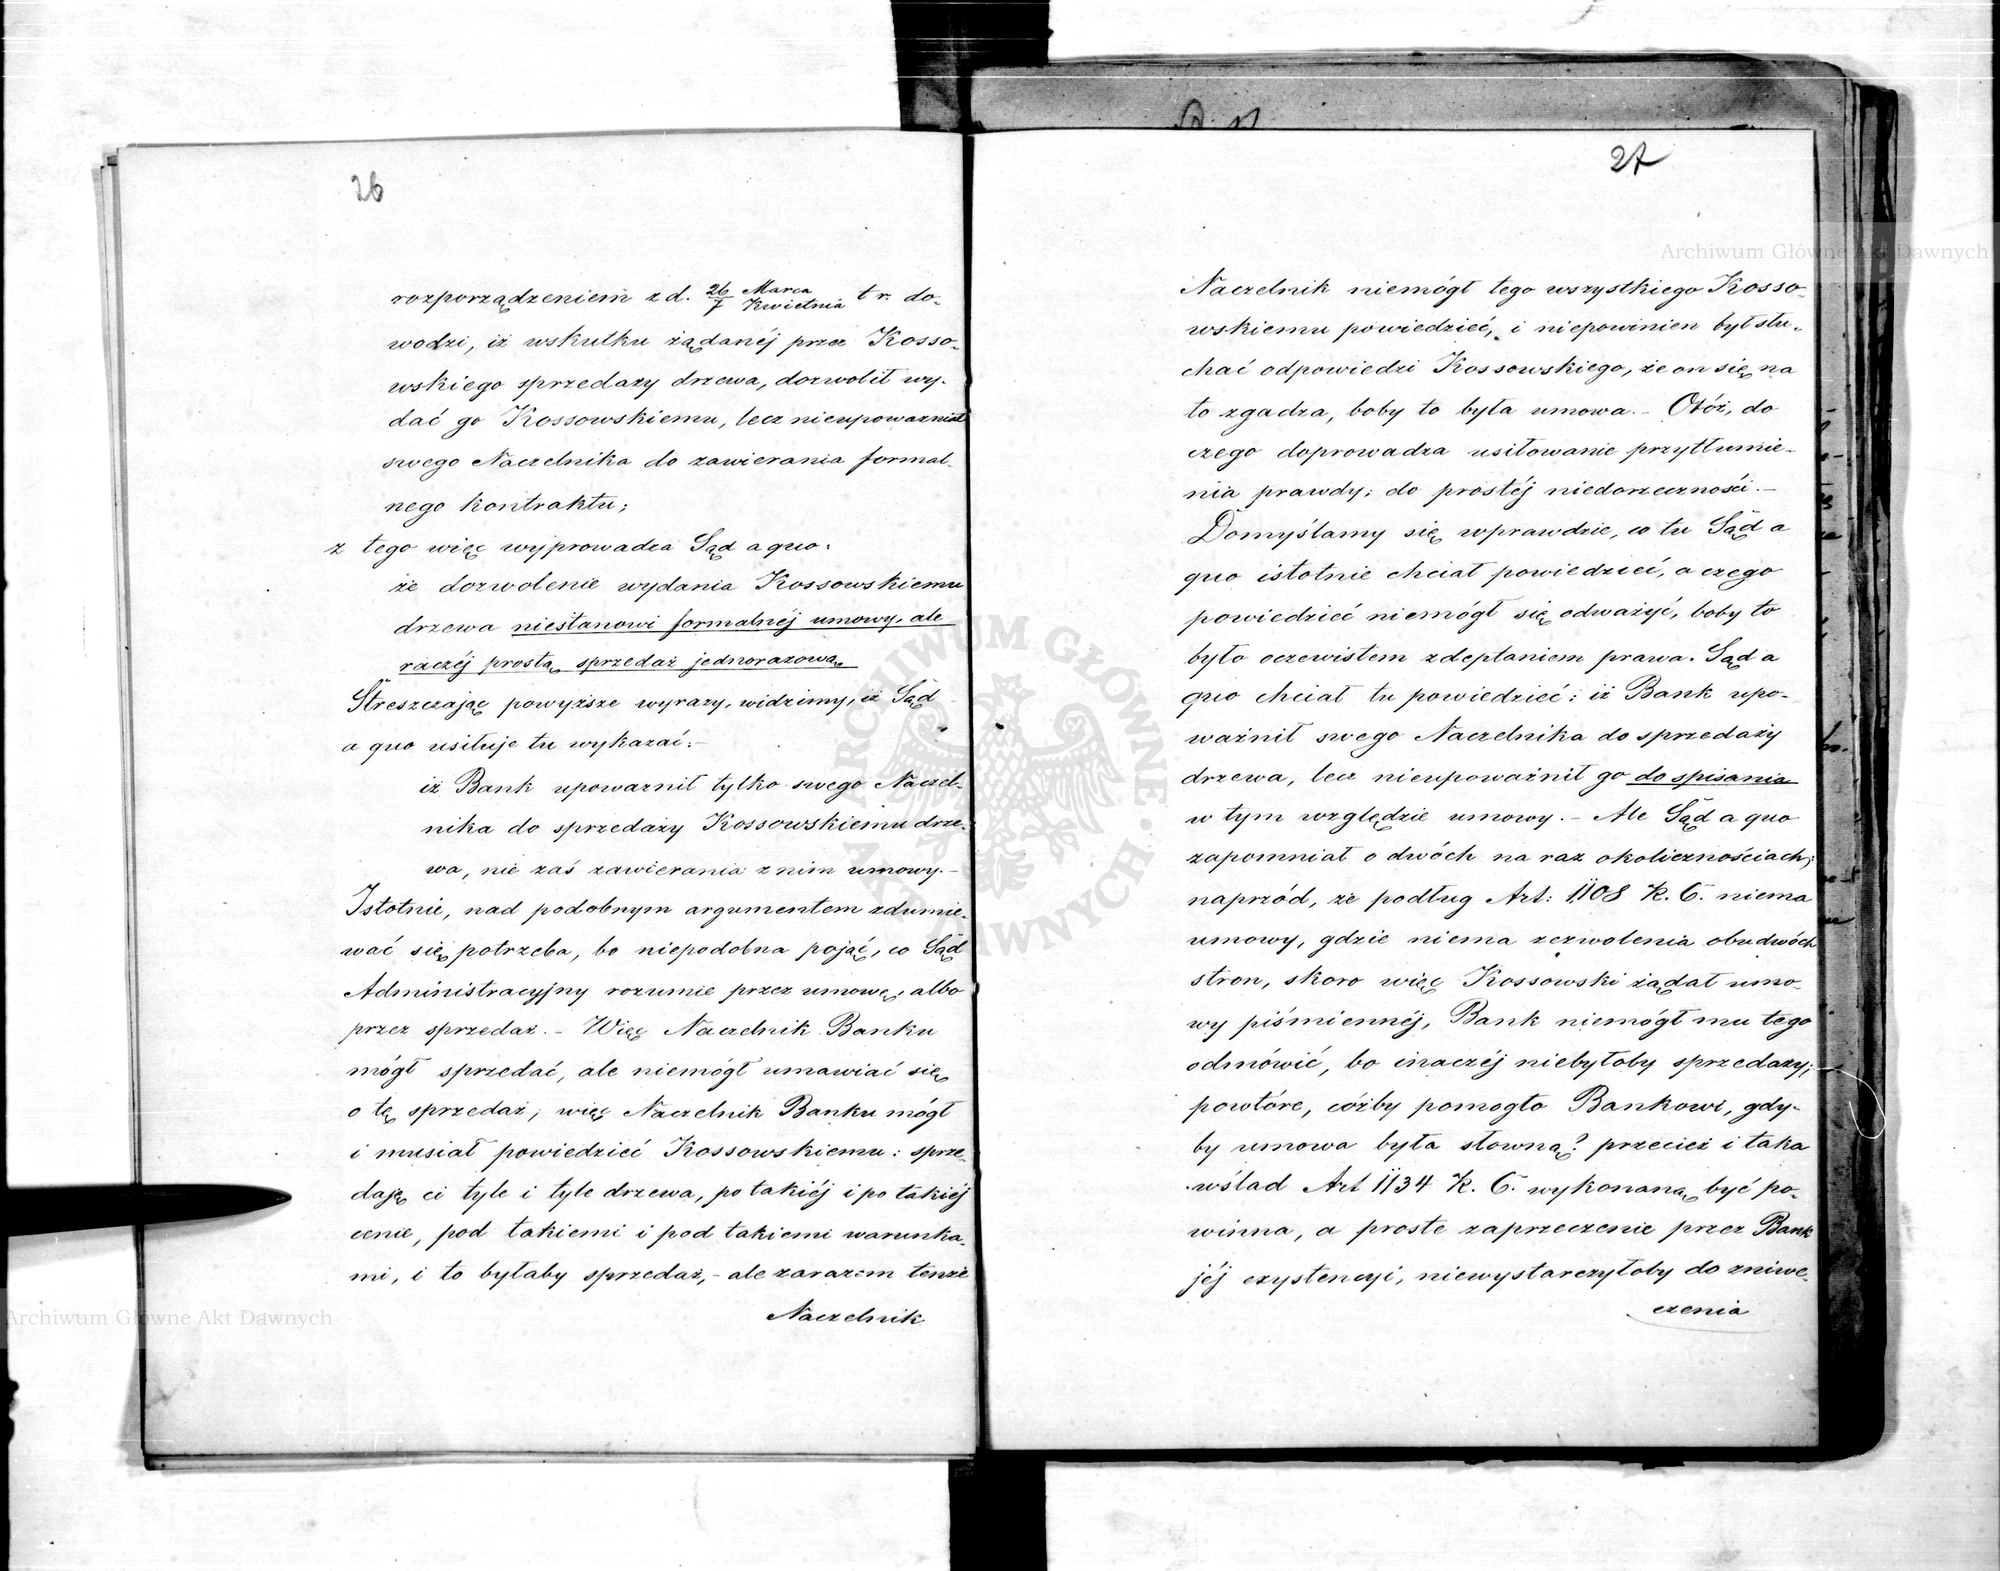 26
rozporządzeniem z d. 26/7 Marca/Kwietnia t r. do-
wodzi, iż wskutku żądanéj przez Kosso-
wskiego sprzedaży drzewa, dozwolił wy-
dać go Kossowskiemu, lecz nieupoważnił
swego Naczelnika do zawierania formal-
nego kontraktu;
z tego więc wyprowadza Sąd a quo:
że dozwolenie wydania Kossowskiemu
drzewa niestanowi formalnéj umowy, ale
raczéj prostą sprzedaż jednorazową
Streszczając powyższe wyrazy, widzimy, iż Sąd
a quo usiłuje tu wykazać:-
iż Bank upoważnił tylko swego Naczel-
nika do sprzedaży Kossowskiemu drze-
wa, nie zaś zawierania z nim umowy.-
Istotnie, nad podobnym argumentem zdumie-
wać się potrzeba, bo niepodobna pojąć, co Sąd
Administracyjny rozumie przez umowę, albo
przez sprzedaż.- Więc Naczelnik Banku
mógł sprzedać, ale niemógł umawiać się
o tę sprzedaż; więc Naczelnik Banku mógł
i musiał powiedzieć Kossowskiemu: sprze-
daję ci tyle i tyle drzewa, po takiéj i po takiéj
cenie, pod takiemi i pod takiemi warunka-
mi, i to byłaby sprzedaż,- ale zarazem tenże
Naczelnik
27
Naczelnik niemógł tego wszystkiego Kosso-
wskiemu powiedzieć, i niepowinien był słu-
chać odpowiedzi Kossowskiego, że on się na
to zgadza, boby to była umowa.- Otóż, do
czego doprowadza usiłowanie przytłumie-
nia prawdy; do prostéj niedorzeczności.-
Domyślamy się wprawdzie, co tu Sąd a
quo istotnie chciał powiedzieć, a czego
powiedzieć niemógł się odważyć, boby to
było oczewistem zdeptaniem prawa. Sąd a
quo chciał tu powiedzieć: iż Bank upo-
ważnił swego Naczelnika do sprzedaży
drzewa, lecz nieupoważnił go do spisania
w tym względzie umowy.- Ale Sąd a quo
zapomniał o dwóch na raz okolicznościach;
naprzód, że podług Art: 1108 K. C. niema
umowy, gdzie niema zezwolenia obudwóch
stron, skoro więc Kossowski żądał umo-
wy piśmiennéj, Bank niemógł mu tego
odmówić, bo inaczéj niebyłoby sprzedaży;
powtóre, cóżby pomogło Bankowi, gdy-
by umowa była słowną? przecież i taka
wślad Art 1134 K. C. wykonaną być po-
winna, a proste zaprzeczenie przez Bank
jéj exystencyi, niewystarczyłoby do zniwe-
czenia
Archiwum Główne Akt Dawnych
Archiwum Główne Akt Dawnych
ARCHIWUM GŁÓWNE AKT DAWNYCH